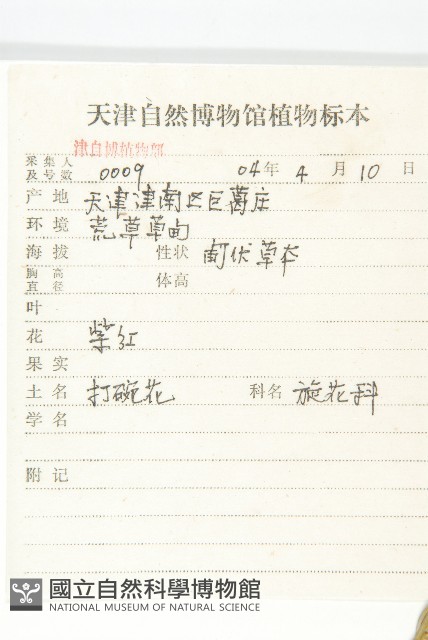 天津自然博物馆植物标本
津自博植物部
采集人
及号数 0009 04年 4月 10日
产地 天津津南区巨葛庄
环境 荒草草甸
海拔 性状 匍伏草本
胸高
直径 体高
叶
花 紫红
果实
土名 打碗花 科名 旋花科
学名
附记
國立自然科學博物館
NATIONAL MUSEUM OF NATURAL SCIENCE